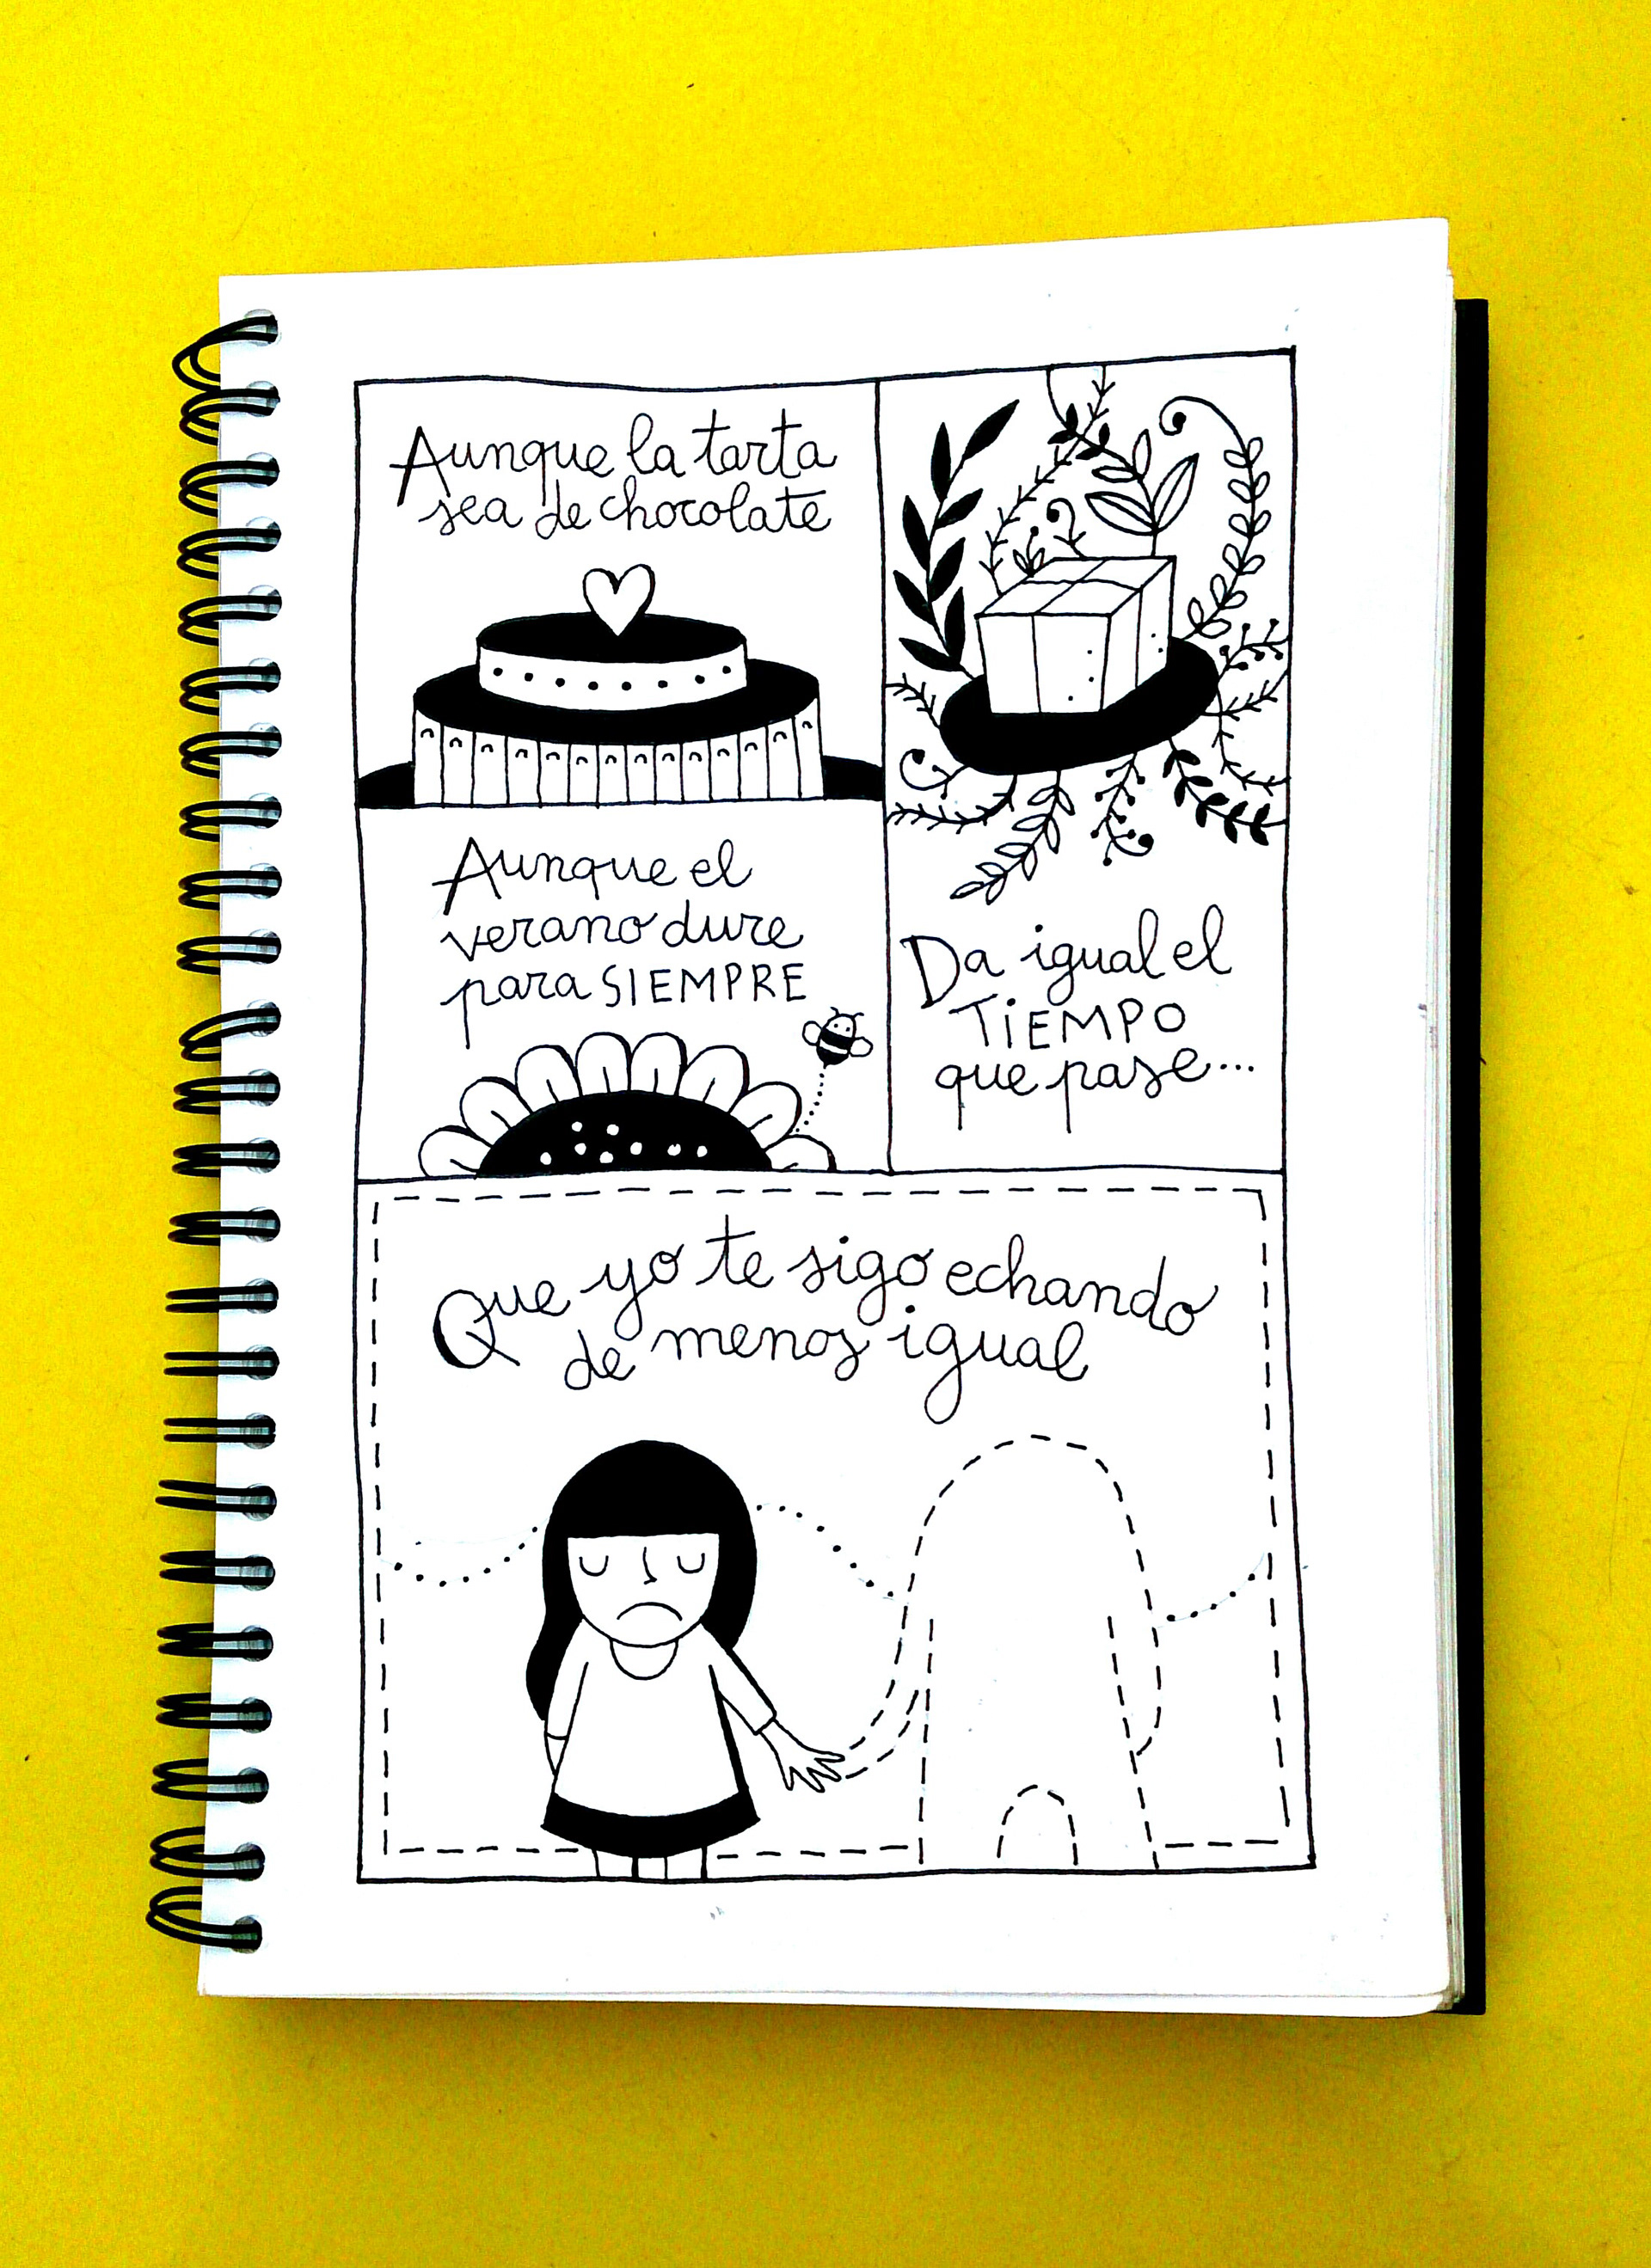 Aunque la tarta
sea de chocolate
Aunque el
verano dure
para SIEMPRE
Da igual el
TiEMPO
que pase...
Que yo te sigo echando
de menos igual